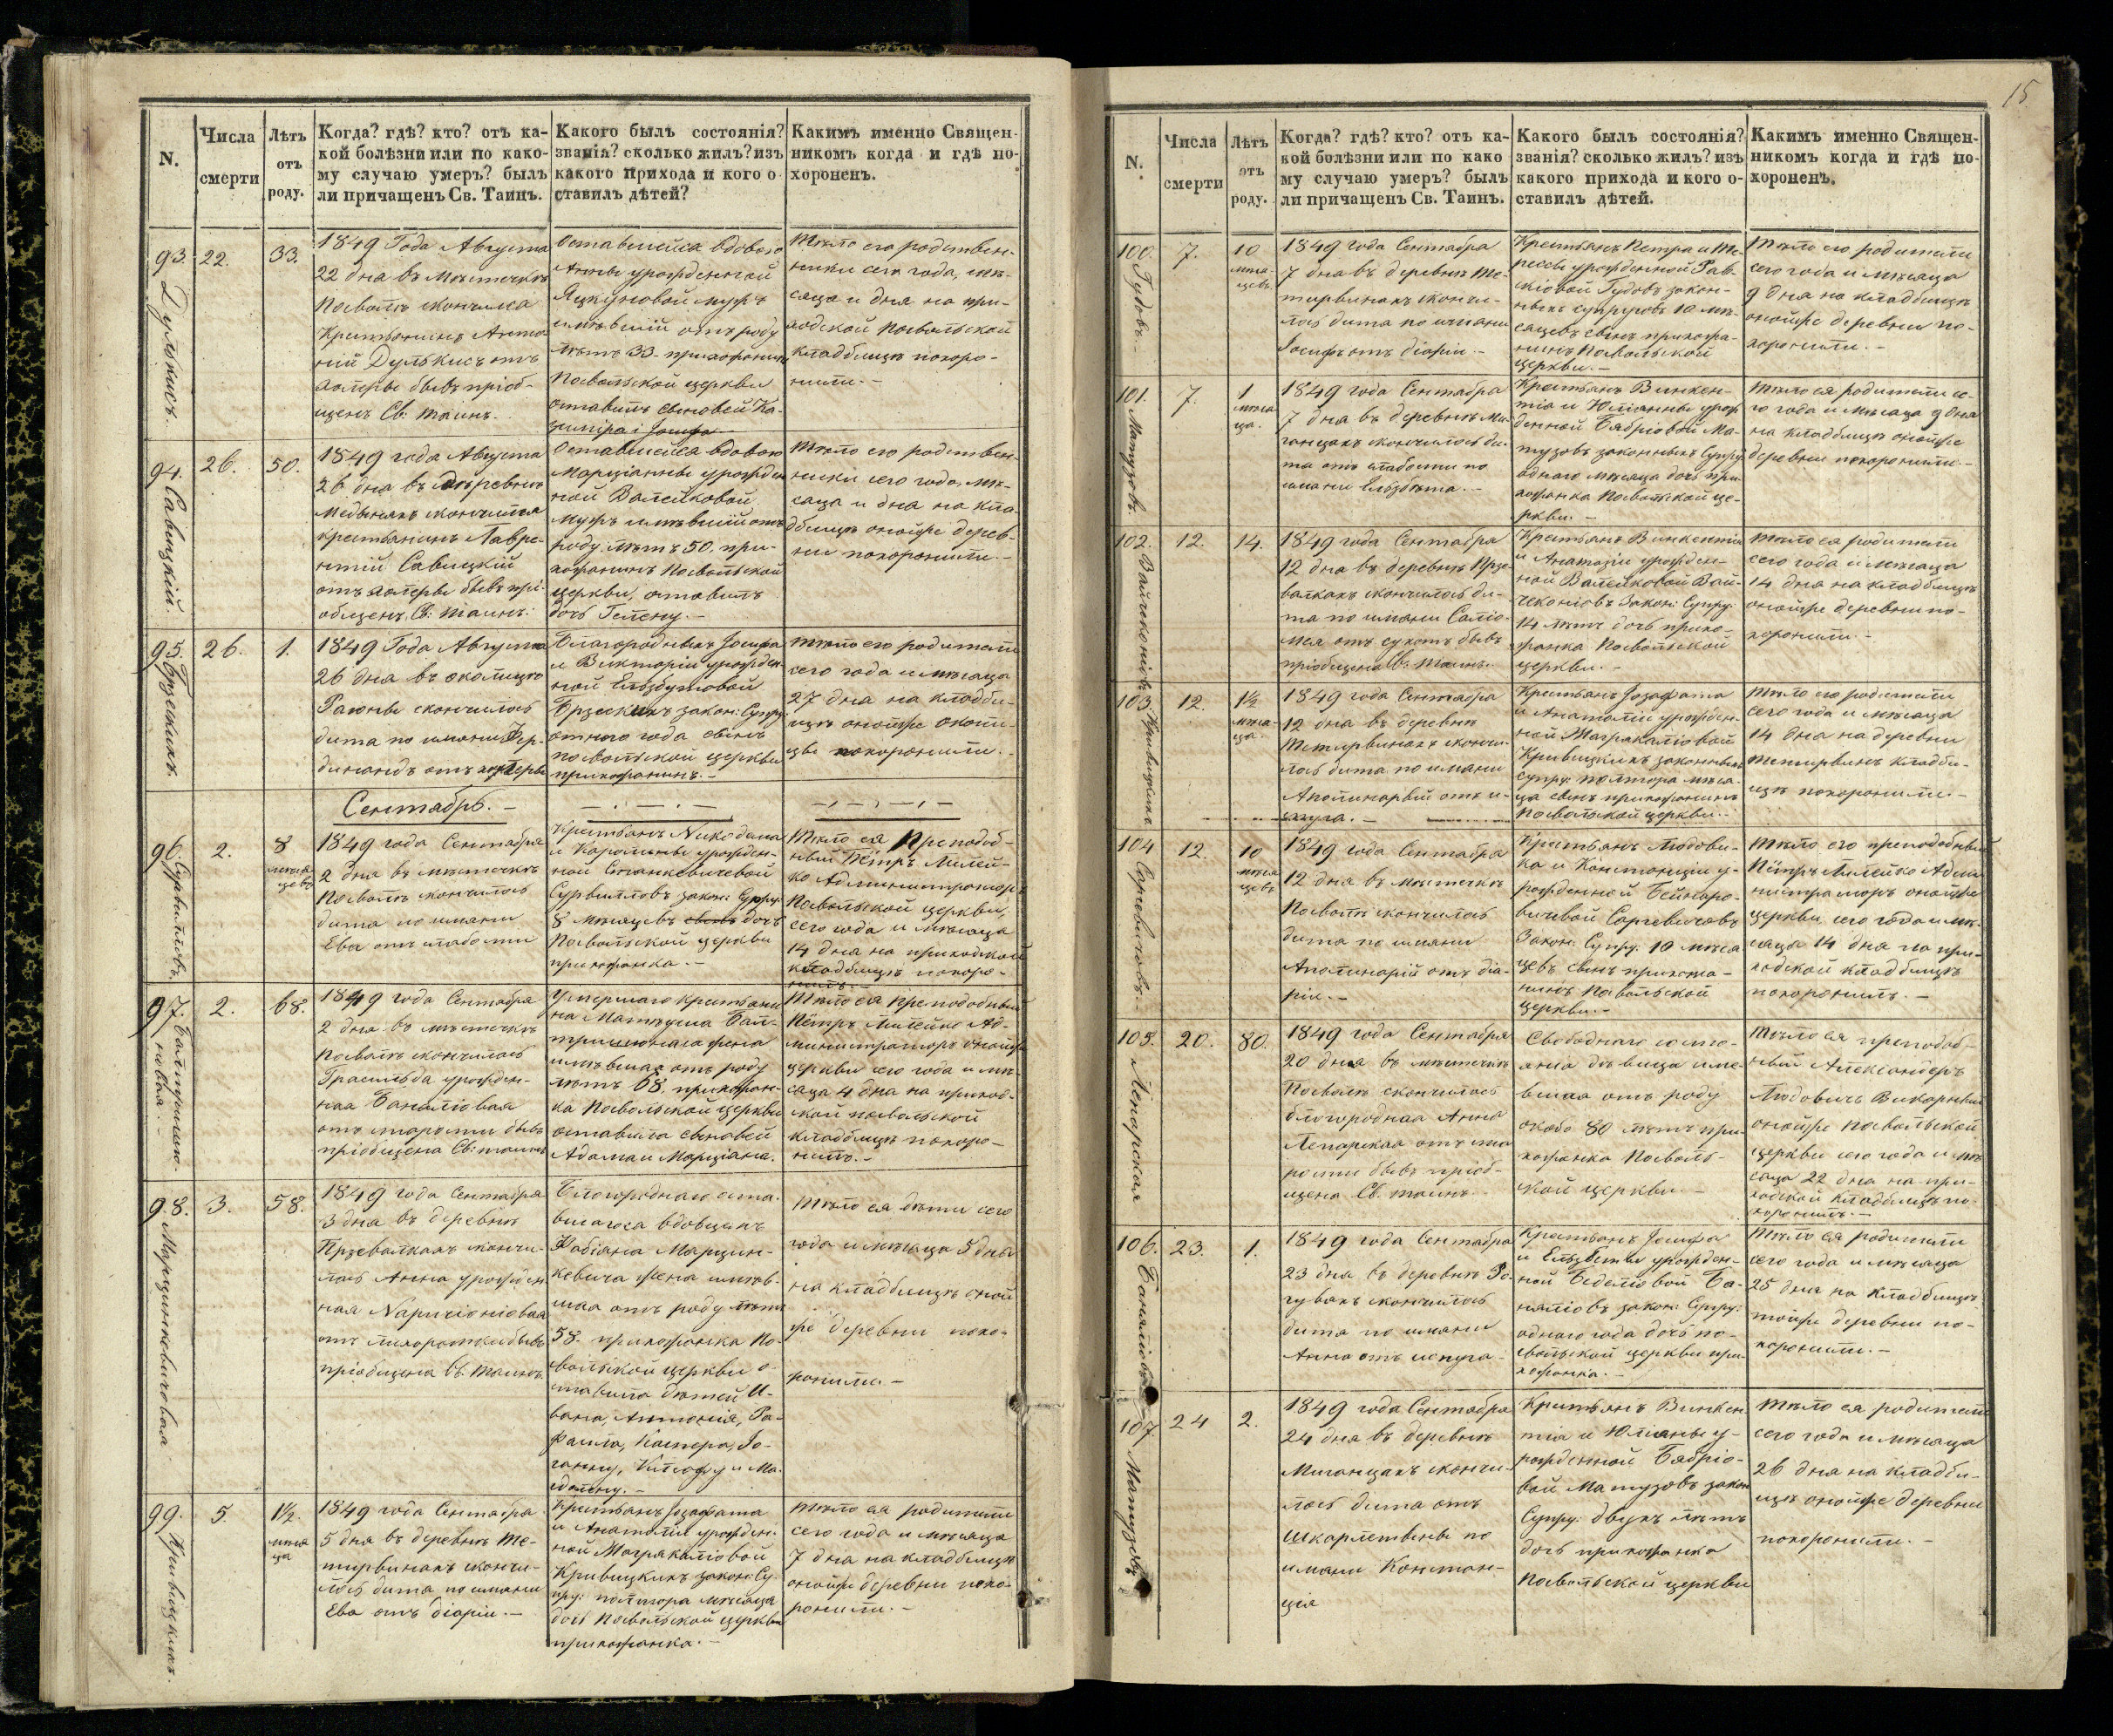 N.
Числа
смерти
Лѣтъ
отъ
роду.
Когда? гдѣ? кто? отъ ка-
кой болѣзни или по како-
му случаю умеръ? былъ
ли причащенъ Св. Таинъ.
Какого былъ состоянія?
званія? сколько жилъ? изъ
какого прихода и кого о-
ставилъ дѣтей?
Какимъ именно Священ-
никомъ когда и гдѣ по-
хороненъ.
93. Дулькисъ.
22.
33.
1849 Года Августа
22 дня въ Мѣстечкѣ
Посволѣ скончался
Крестьянинъ Анто-
ній Дулькисъ отъ
холеры бывъ пріоб-
щенъ Св. Таинъ.
Оставшейся вдовою
Анны урожденной
мужъ
имѣвшій отъ роду
лѣтъ 33. прихожанинъ
Посвольской церкви
оставилъ сыновей Ка-
зиміра і Іосифа
Тѣло его родствен-
ники сего года, мѣ-
сяца и дня на при-
ходской Посвольской
кладбищѣ похоро-
нили. -
94. Савицкій.
26.
50.
1849 года Августа
26 дня въ деревнѣ
скончался
крестьянинъ Лавре-
нтій Савицкій
отъ холеры бывъ прі-
общенъ Св. Таинъ.
Оставшейся вдовою
Марціанны урожден-
ной Валейковой
мужъ имѣвшій отъ
роду лѣтъ 50. при-
хожанинъ Посвольской
церкви, оставилъ
дочь Гелену. -
Тѣло его родствен-
ники сего года, мѣ-
сяца и дня на кла-
дбищѣ оной же дерев-
ни похоронили. -
95. Брзескихъ.
26.
1.
1849 Года Августа
26 дня въ околицѣ
Раюны скончалось
дитя по имяни Фер-
динандъ отъ холеры
Благородныхъ Іосифа
и Викторіи урожден-
ной
Брзескихъ закон: Супру:
одного года сынъ
посвольской церкви
прихожанинъ. -
Тѣло его родители
сего года и мѣсяца
27 дня на кладби-
щѣ оной же околи-
цы похоронили. -
Сентябрь. -
96. Сурвилловъ.
2.
8
мѣся-
цевъ
1849 года Сентября
2 дня въ мѣстечкѣ
Посволѣ скончалось
дитя по имяни
Ева отъ слабости
Крестьянъ Никодима
и Каролины урожден-
ной Станкевичевой
Сурвилловъ закон: Супру:
8 мѣсяцевъ дочь
Посвольской церкви
прихожанка. -
Тѣло ея Преподоб-
ный Пётръ Милей-
ко Администраторъ
Посвольской церкви,
сего года и мѣсяца
14 дня на приходской
кладбищѣ похоро-
нилъ. -
97.
2.
68.
1849 года Сентября
2 дня въ мѣстечкѣ
Посволѣ скончалась
урожден-
ная
отъ старости бывъ
пріобщена Св: таинъ
Умершаго крестьяни-
на
жена
имѣвшая отъ роду
лѣтъ 68, прихожан-
ка Посвольской церкви
оставила сыновей
Адама и Марціана.
Тѣло ея Преподобный
Пётръ Милейко Ад-
министраторъ оной же
церкви сего года и мѣ-
сяца 4 дня на приход-
ской посвольской
кладбищѣ похоро-
нилъ. -
98. Марцинкевичевая
3.
58.
1849 года Сентября
3 дня въ деревнѣ
Прзевалкахъ сконча-
лась Анна урожден-
ная
отъ лихорадки бывъ
пріобщена Св. Таинъ.
Благороднаго оста-
вшагося вдовцемъ
Фабіана Марцин-
кевича жена имѣв-
шая отъ роду лѣтъ
58. прихожанка По-
свольской церкви о-
ставила дѣтей И-
вана, Антонія, Ра-
фаила, Каспера, Іо-
ганну, и Ма-
гдалену. -
Тѣло ея дѣти сего
года и мѣсяца 5 дня
на кладбищѣ оной
же деревни похо-
ронили. -
99. Кривицкихъ.
5.
1½.
мѣся
ца
1849 года Сентября
5 дня въ деревнѣ Те-
тирвинахъ сконча-
лось дитя по имяни
Ева отъ діаріи. -
Крестьянъ Іозафата
и Анатоліи урожден-
ной Маграколіовой
Кривицкихъ закон: Су-
пру: полтора мѣсяца
дочь Посвольской церкви
прихожанка. -
Тѣло ея родители
сего года и мѣсяца
7 дня на кладбищѣ
оной же деревни похо-
ронили. -
15
N.
Числа
смерти
Лѣтъ
отъ
роду.
Когда? гдѣ? кто? отъ ка-
кой болѣзни или по како
му случаю умеръ? былъ
ли причащенъ Св. Таинъ.
Какого былъ состоянія?
званія? сколько жилъ? изъ
какого прихода и кого о-
ставилъ дѣтей.
Какимъ именно Священ-
никомъ когда и гдѣ по-
хороненъ.
100. Гудовъ. -
7.
10
мѣся-
цевъ.
1849 года Сентября
7 дня въ деревнѣ Те-
тирвинахъ сконча-
лось дитя по имяни
Іосифъ отъ діаріи. -
Крестьянъ Петра и Те-
ресы урожденной
Гудовъ закон-
ныхъ супруговъ 10 мѣ-
сяцевъ сынъ прихожа-
нинъ Посвольской
церкви. -
Тѣло его родители
сего года и мѣсяца
9 дня на кладбищѣ
оной же деревни по-
хоронили. -
101. Матузовъ
7.
1
мѣся
ца.
1849 года Сентября
7 дня въ деревнѣ Ми-
ганцахъ скончалось ди-
тя отъ слабости по
имяни Ельзбѣта. -
Крестьянъ Винкен-
тія и Юліанны урож
денной Бябріовой Ма-
тузовъ законныхъ Супру:
одного мѣсяца дочь при-
хожанка Посвольской це-
ркви. -
Тѣло ея родители се-
го года и мѣсяца 9 дня
на кладбищѣ оной же
деревни похоронили. -
102. Вайчконіовъ
12.
14.
1849 года Сентября
12 дня въ деревнѣ Прзе-
валкахъ скончалось ди-
тя по имяни Салю-
мея отъ сухотъ бывъ
пріобщена Св. Таинъ.
Крестьянъ Винкентія
и Анатазіи урожден-
ной Валейковой Вай-
чконіовъ Закон: Супру:
14 лѣтъ дочь прихо-
жанка Посвольской
церкви. -
Тѣло ея родители
сего года и мѣсяца
14 дня на кладбищѣ
оной же деревни по-
хоронили. -
103. Кривицкихъ
12.
1½
мѣся-
ца.
1849 года Сентября
12 дня въ деревнѣ
Тетирвинахъ сконча-
лось дитя по имяни
Аполинарвій отъ и-
спуга. -
Крестьянъ Іозафата
и Анатоліи урожден-
ной Маграколіовой
Кривицкихъ законныхъ
супру: полтора мѣся-
ца сынъ прихожанинъ
Посвольской церкви. -
Тѣло его родители
сего года и мѣсяца
14 дня на деревни
Тетирвинъ кладби-
щѣ похоронили. -
104. Саргевичовъ. -
12.
10
мѣся
цевъ
1849 года Сентября
12 дня въ мѣстечкѣ
Посволѣ скончалось
дитя по имяни
Аполинарій отъ діа-
ріи. -
Крестьянъ Людови-
ка и Констанціи у-
рожденной Бейнаро-
вичевой Саргевичовъ
Закон: Супру: 10 мѣся
цевъ сынъ прихожа-
нинъ Посвольской
церкви. -
Тѣло его преподобный
Пётръ Милейко Адми-
нистраторъ оной же
церкви сего года и мѣ-
сяца 14 дня на при-
ходской кладбищѣ
похоронилъ. -
105. Лепарская
20.
80.
1849 года Сентября
20 дня въ мѣстечкѣ
Посволѣ скончалась
благородная Анна
Лепарская отъ ста
рости бывъ пріоб-
щена Св. таинъ. -
Свободнаго состо-
янія дѣвица имѣ-
вшая отъ роду
около 80 лѣтъ при-
хожанка Посволь-
ской церкви. -
Тѣло ея преподоб-
ный Александеръ
Людовичъ Викарный
оной же посвольской
церкви сего года и мѣ
сяца 22 дня на при-
ходской кладбищѣ по-
хоронилъ. -
106. Банялювъ
23.
1.
1849 года Сентября
23 дня въ деревнѣ Ро-
гувахъ скончалось
дитя по имяни
Анна отъ испуга -
Крестьянъ Іосифа
и Ельзбѣты урожден-
ной Беделіовой Ба-
няліовъ закон: Супру:
одного года дочь по-
свольской церкви при-
хожанка. -
Тѣло ея родители
сего года и мѣсяца
25 дня на кладбищѣ
той же деревни по-
хоронили. -
107. Матузовъ
24
2.
1849 года Сентября
24 дня въ деревнѣ
Миганцахъ сконча-
лось дитя отъ
шкарлетины по
имяни Констан-
ція
Крестьянъ Винкен
тія и Юліаны у-
рожденной Бябріо-
вой Матузовъ закон
Супру: двухъ лѣтъ
дочь прихожанка
Посвольской церкви
Тѣло ея родители
сего года и мѣсяца
26 дня на кладби-
щѣ оной же деревни
похоронили. -